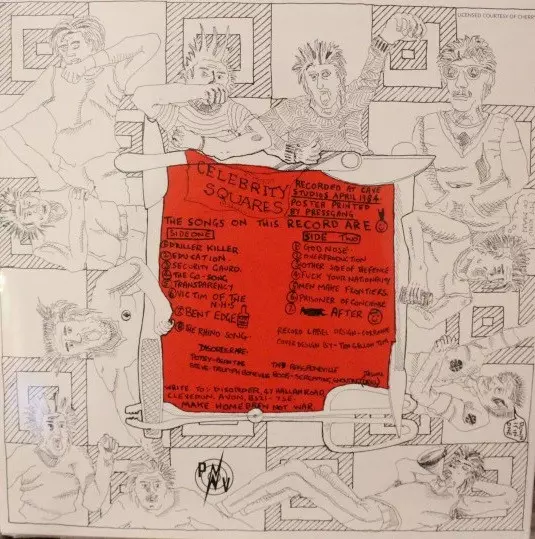 LICENSED COURTESY OF CHERRY
CELEBRITY
SQUARES
RECORDED AT CAVE
STUDIOS APRIL 1984
POSTER PRINTED
BY PRESSGANG
THE SONGS ON THIS RECORD ARE
SIDE ONE
① DRILLER KILLER
② EDUCATION
③ SECURITY GAURD.
④ THE GO-SONG
⑤ TRANSPARENCY
⑥ VICTIM OF THE
N.H.S
⑦ BENT EDGE
⑧ THE RHINO SONG.
SIDE TWO
① GOD NOSE
② OVERPRODUCTION
③ OTHER SIDE OF THE FENCE
④ FUCK YOUR NATIONALITY
⑤ MEN MAKE FRONTIERS
⑥ PRISONER OF CONCIENCE
⑦ AFTER
RECORD LABEL DESIGN -
COVER DESIGN BY -
DISORDER ARE
WRITE TO: DISORDER, 67 HALLAM ROAD
CLEVEDON, AVON, BS21-7SE
MAKE HOMEBREW NOT WAR